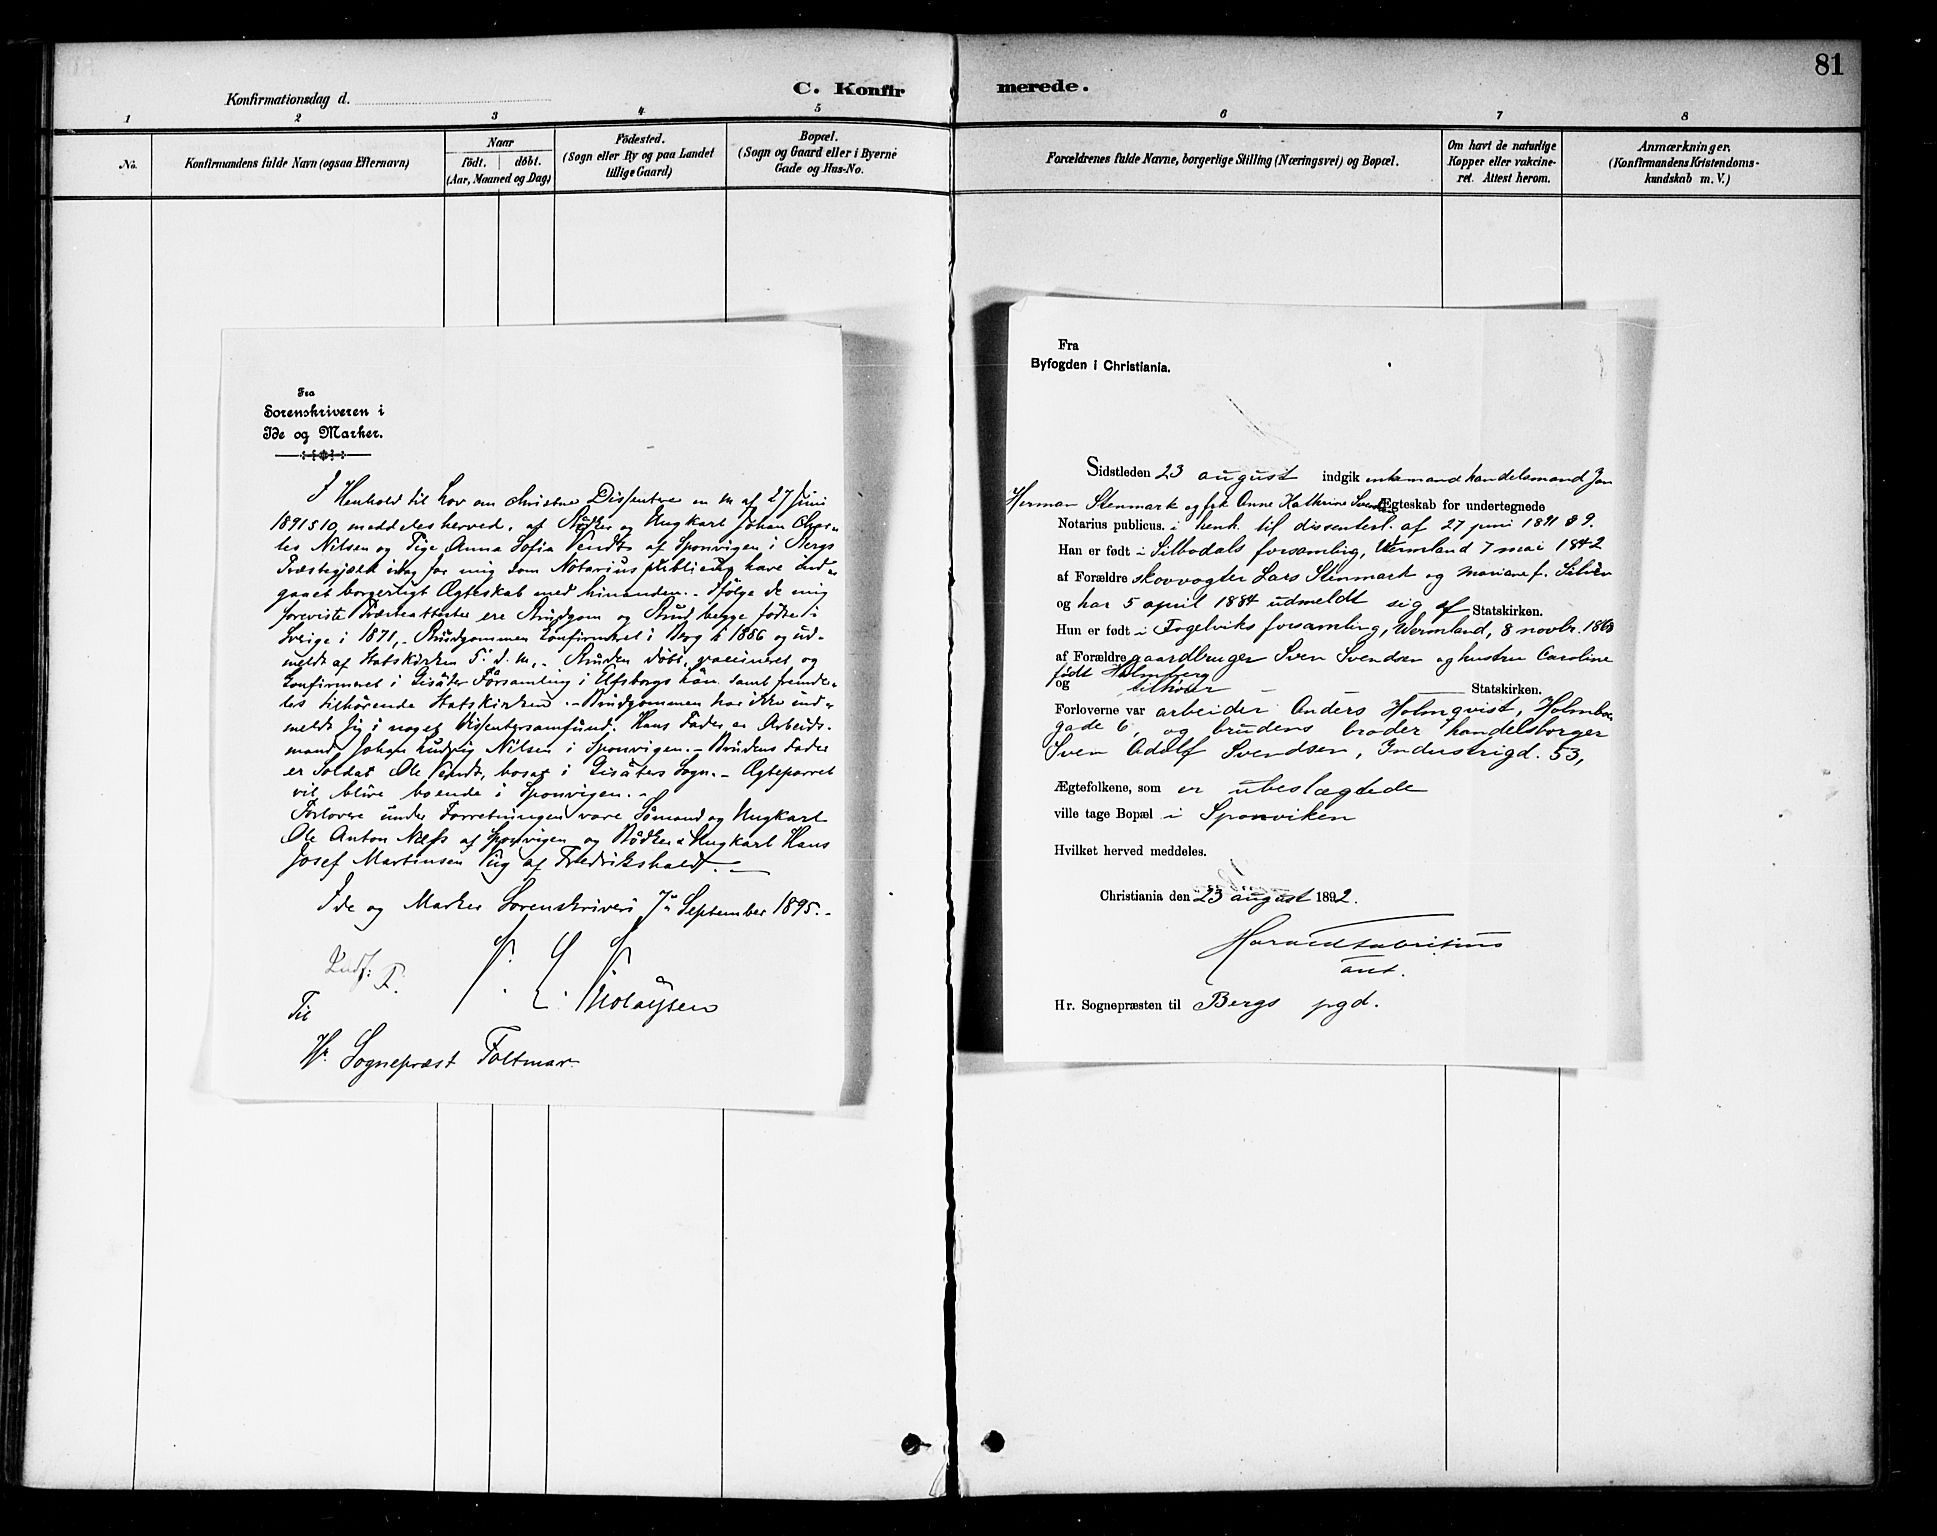 81
Konfirmationsdag d.
C. Konfir
merede.
1
2
3
4
5
6
7
8
No.
Konfirmandens fulde Navn (ogsaa Efternavn)
Naar
födt. döbt.
(Aar, Maaned og Dag)
Födested.
(Sogn eller By og paa Landet
tillige Gaard)
Bopæl.
(Sogn og Gaard eller i Byerne
Gade og Hus-No.
Forældrenes fulde Navne, borgerlige Stilling (Næringsvei) og Bopæl.
Om havt de naturlige
Kopper eller vakcine-
ret. Attest herom.
Anmærkninger.
(Konfirmandens Kristendoms-
kundskab m. V.)
Fra
Sorenskriveren i
Ide og Marker.
I Henhold til Lov om christne Dissentere en m af 27 Juni
1891 § 10 meddeles herved, at Bødker og Ungkarl Johan Char-
les Nilsen og Pige Anna Sofia Vendt af Sponvigen i Bergs
Præstegjæld idag for mig som Notarius publicus have ind-
gaaet borgerligt Ægteskab med hinanden. - Ifølge de mig
foreviste Præsteattester ere Brudgom og Brud begge fødte i
Sverige i 1871, - Brudgommen konfirmeret i Berg 1886 og ud-
meldt af Statskirken 5. d. M., - Bruden døbt, vaccineret og
konfirmeret i Gisäter Församling i Elfsborgs Län samt fremde-
les tilhørende Statskirken. - Brudgommen har ikke ind-
meldt sig i noget Dissentersamfund. Hans Fader er Arbeids-
mand Johan Ludvig Nilsen i Sponvigen. - Brudens Fader
er Soldat Ole Vendt, bosat i Gisäters Sogn. - Ægteparret
vil blive boende i Sponvigen. -
Forlovere under Forretningen vare Sømand og Ungkarl
Ole Anton Næss af Sponvigen og Bødker & Ungkarl Hans
Josef Martinsen Vig af Fredrikshald. -
Ide og Marker Sorenskriveri 7 September 1895. -
N. C. Nicolaysen
Til
Hr. Sognepræst Foltmar
Fra
Byfogden i Christiania.
Sidstleden 23 august indgik enkemand handelsmand Jan
Herman Stenmark og frk Anne Kathrine Svendsen Ægteskab for undertegnede
Notarius publicus. i henh. til dissenterl. af 27 juni 1891 § 9.
Han er født i Silbodals forsamling, Wermland 7 mai 1842
af Forældre skovvogter Lars Stenmark og Mariane f. Silién
og har 5 april 1884 udmeldt sig af Statskirken.
Hun er født i Fogelviks forsamling, Wermland, 8 novbr. 1868
af Forældre gaardbruger Sven Svendsen og hustru Caroline
født Holmberg
og tilhører Statskirken.
Forloverne var arbeider Anders Holmqvist, Holmbo-
gade 6, og brudens broder handelsborger
Sven Adolf Svendsen, Industrigd. 53,
Ægtefolkene, som er ubeslægtede
ville tage Bopæl i Sponviken
Hvilket herved meddeles.
Christiania den 23 august 1892.
Harald Fabritius
Hr. Sognepræsten til Bergs pgd.